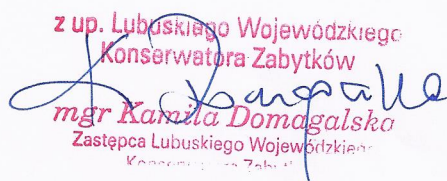 z up. Lubuskiego Wojewódzkiego
Konserwatora Zabytków
mgr Kamila Domagalska
Zastępca Lubuskiego Wojewódzkiego